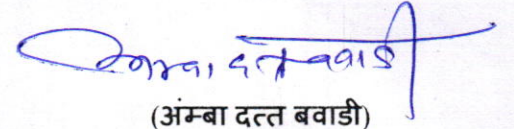 अम्बा दत्त बवाडी
(अंम्बा दत्त बवाडी)